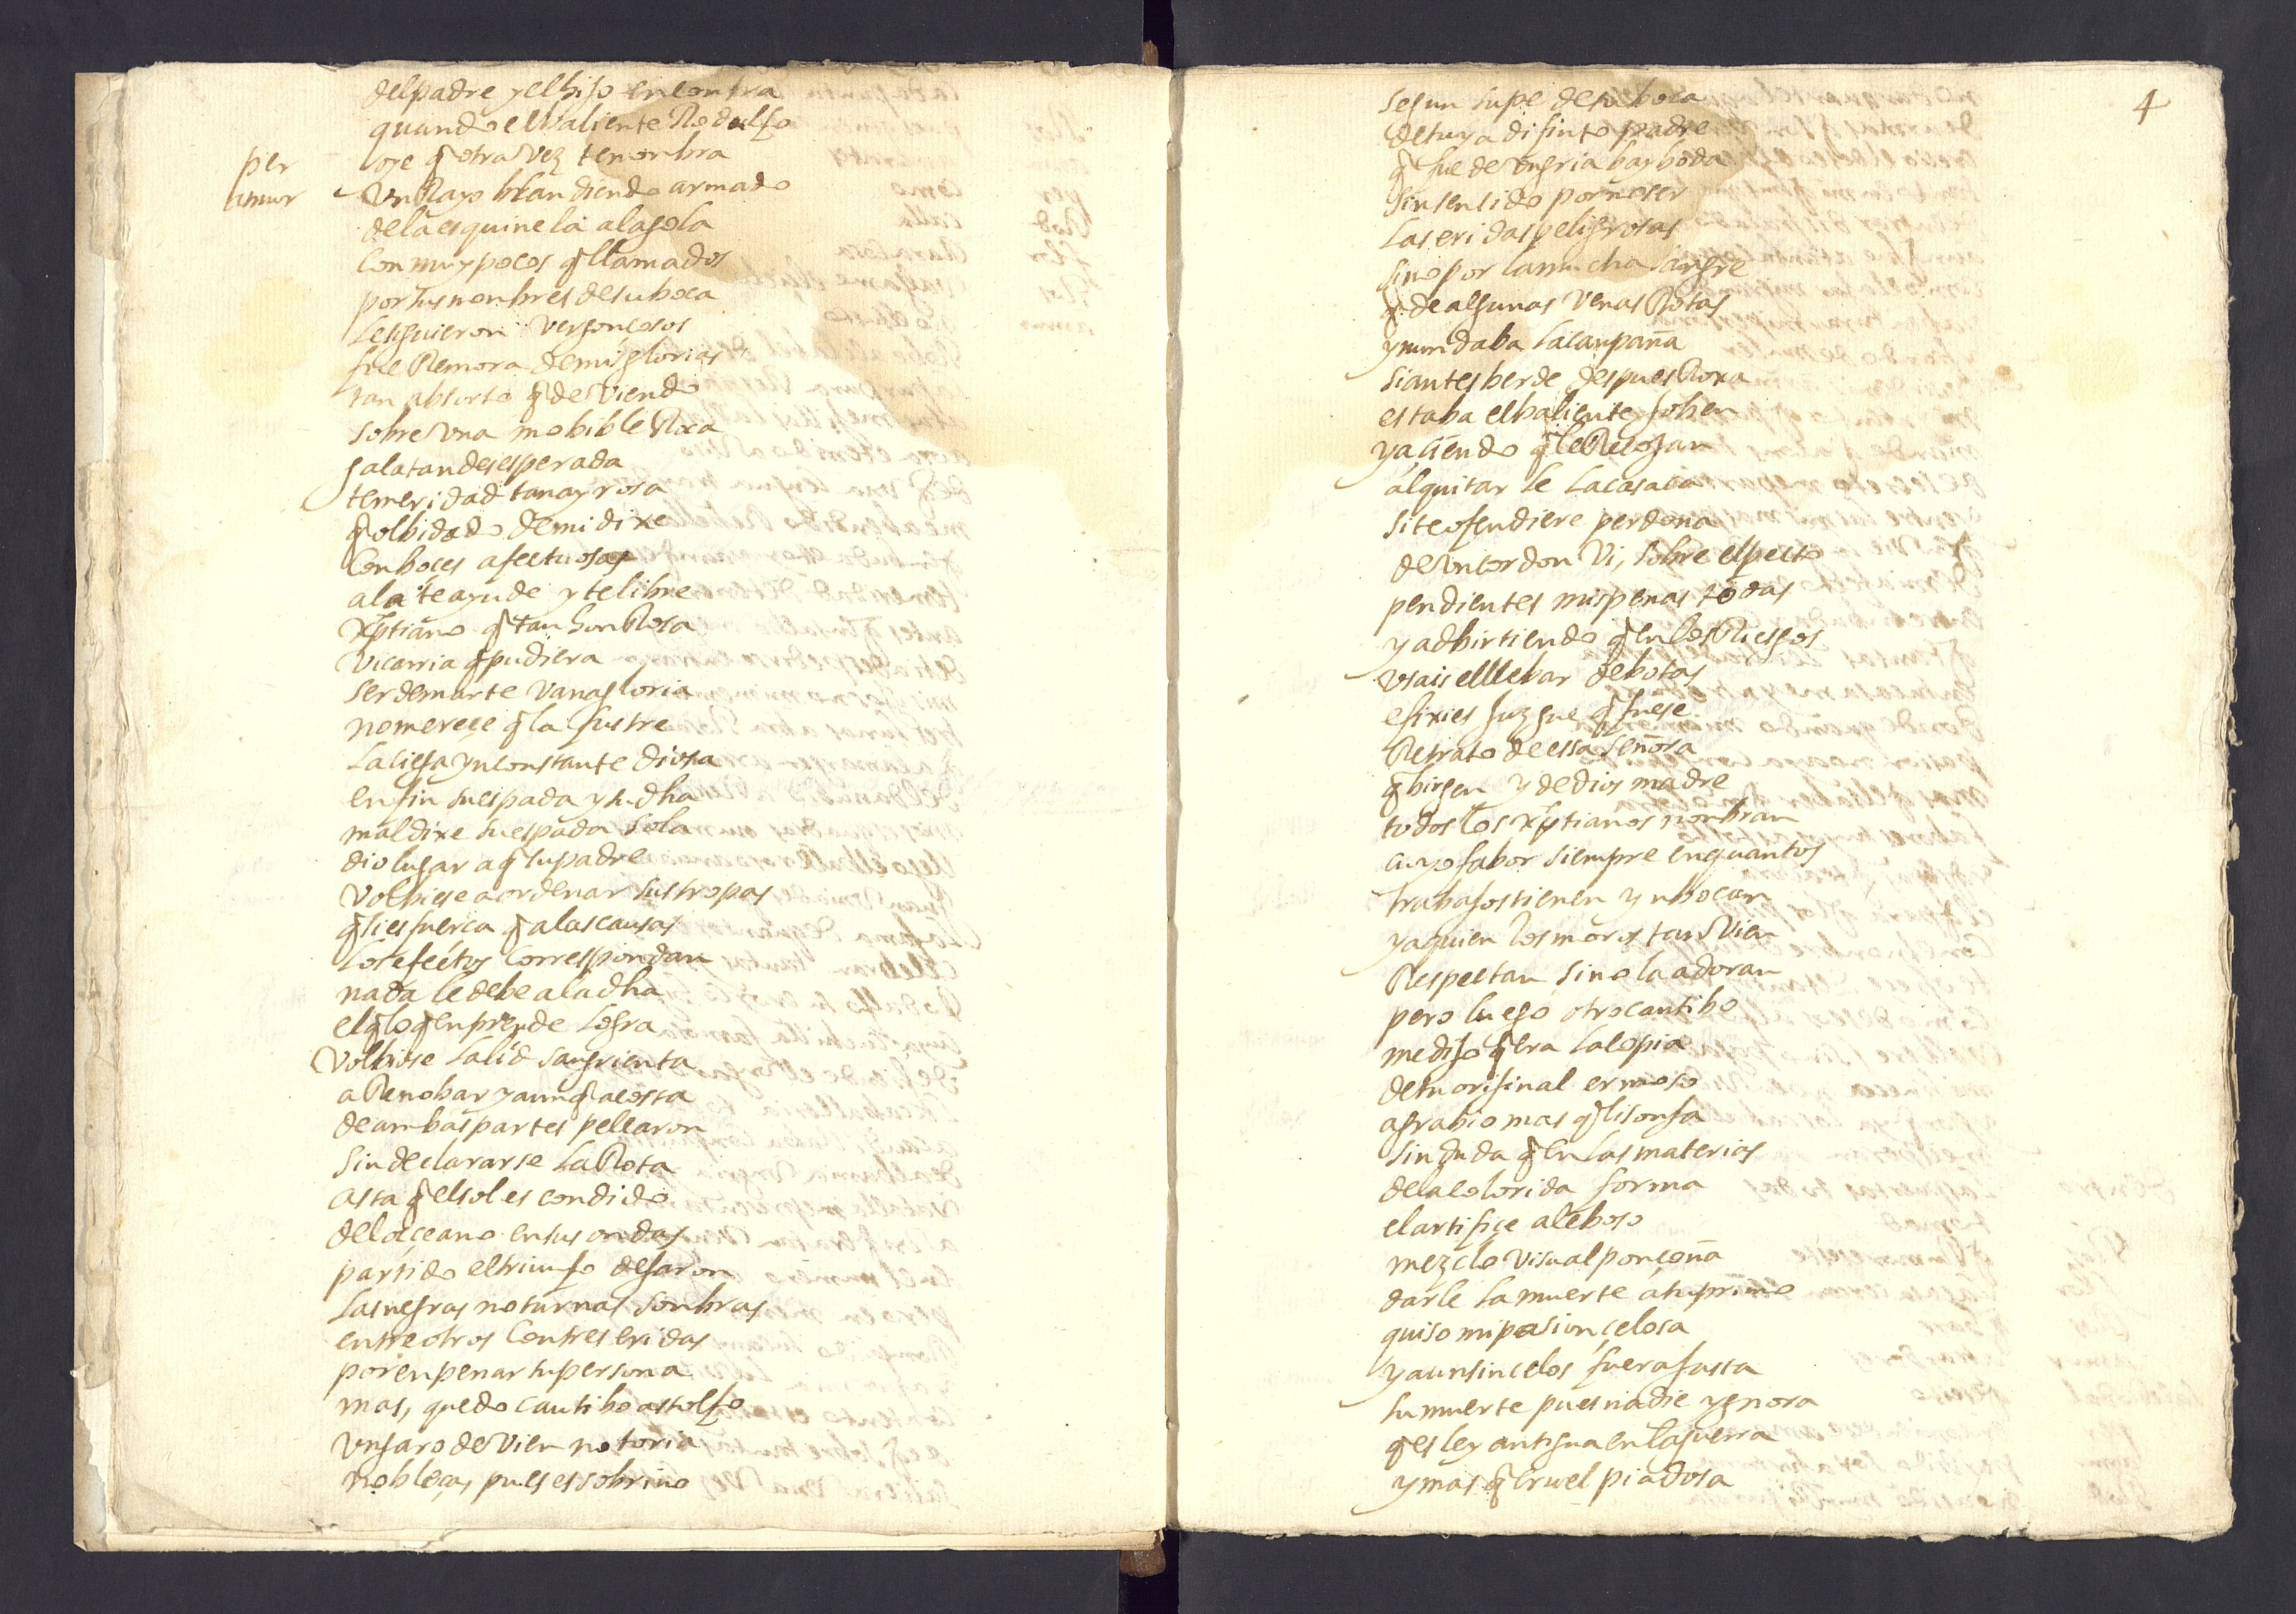 del padre y el hijo en contra
quando el baliente Rodulfo
per oye q̃ otra vez te nonbra
amur Vn Rayo blandiendo armado
de la esquinela a la gola
con muy pocos q̃ llamados
por sus nonbres de su boca
le siguieron vergonçosos
fue Remora de mis glorias
tan absorto q̃ de viendo
sobre vna mobible Roca
gala tan desesperada
temeridad tan ayrosa
q̃ olbidado de mi dixe
con boçes afectuosas
ala te ayude y te libre
xptiano q̃ tan honRosa
vicarria q̃ pudiera
ser de marte vanagloria
no mereçe q̃ la frustre
la ciega ynconstante diosa
en fin su espada y su dha
mal dixe su espada sola
dio lugar a q̃ su padre
volbiese a ordenar sus tropas
q̃ si es fuerca q̃ a las causas
los efectos correspondan
nada le debe a la dha
el q̃ lo q̃ enprende logra
volbiose la lid sangrienta
a Renobar y aunq̃ a costa
de ambas partes pelearon
sin declararse la Rota
asta q̃ el sol escondido
del oçeano en sus ondas
partido el triunfo dejaron
las negras noturnas sonbras
entre otros con tres eridas
por enpenar tu persona
mas, quedo cautibo astolfo
vngaro de vien notoria
nobleça, pues es sobrino
4
segun supe de su boca
de tu ya difinto padre
q̃ fue de vngria bayboda
sin sentido por no ser
las eridas peligrosas
sino por la mucha sangre
q̃ de algunas venas Rotas
ynundaba la canpaña
si antes berde despues Roxa
estaba el baliente joben
y açiendo q̃ le Recojan
al quitar le la casaca
si te ofendiere perdona
de vn cordon vi, sobre el pecto
pendientes mis penas todas
y adbirtiendo q̃ en los Riesgos
vsais el llebar debotas
efixies juzgue q̃ fuese
Retrato de essa señora
q̃ birgen y de dios madre
todos los xptianos nonbran
cuyo fabor siempre en quantos
trabajos tienen ynbocan
y a quien los moros tanvien
Respectan si no la adoran
pero luego otro cautibo
me dijo q̃ era la copia
de tu orijinal ermoso
agrabio mas q̃ lisonja
sin duda q̃ en las materias
de la colorida forma
el artifiçe aleboso
mezclo visual ponçoña
darle la muerte a tu primo
quiso mi pasion çelosa
y aun sin celos fuera justa
su muerte pues nadie ygnora
q̃ es ley antigua en la guerra
y mas q̃ cruel piadosa